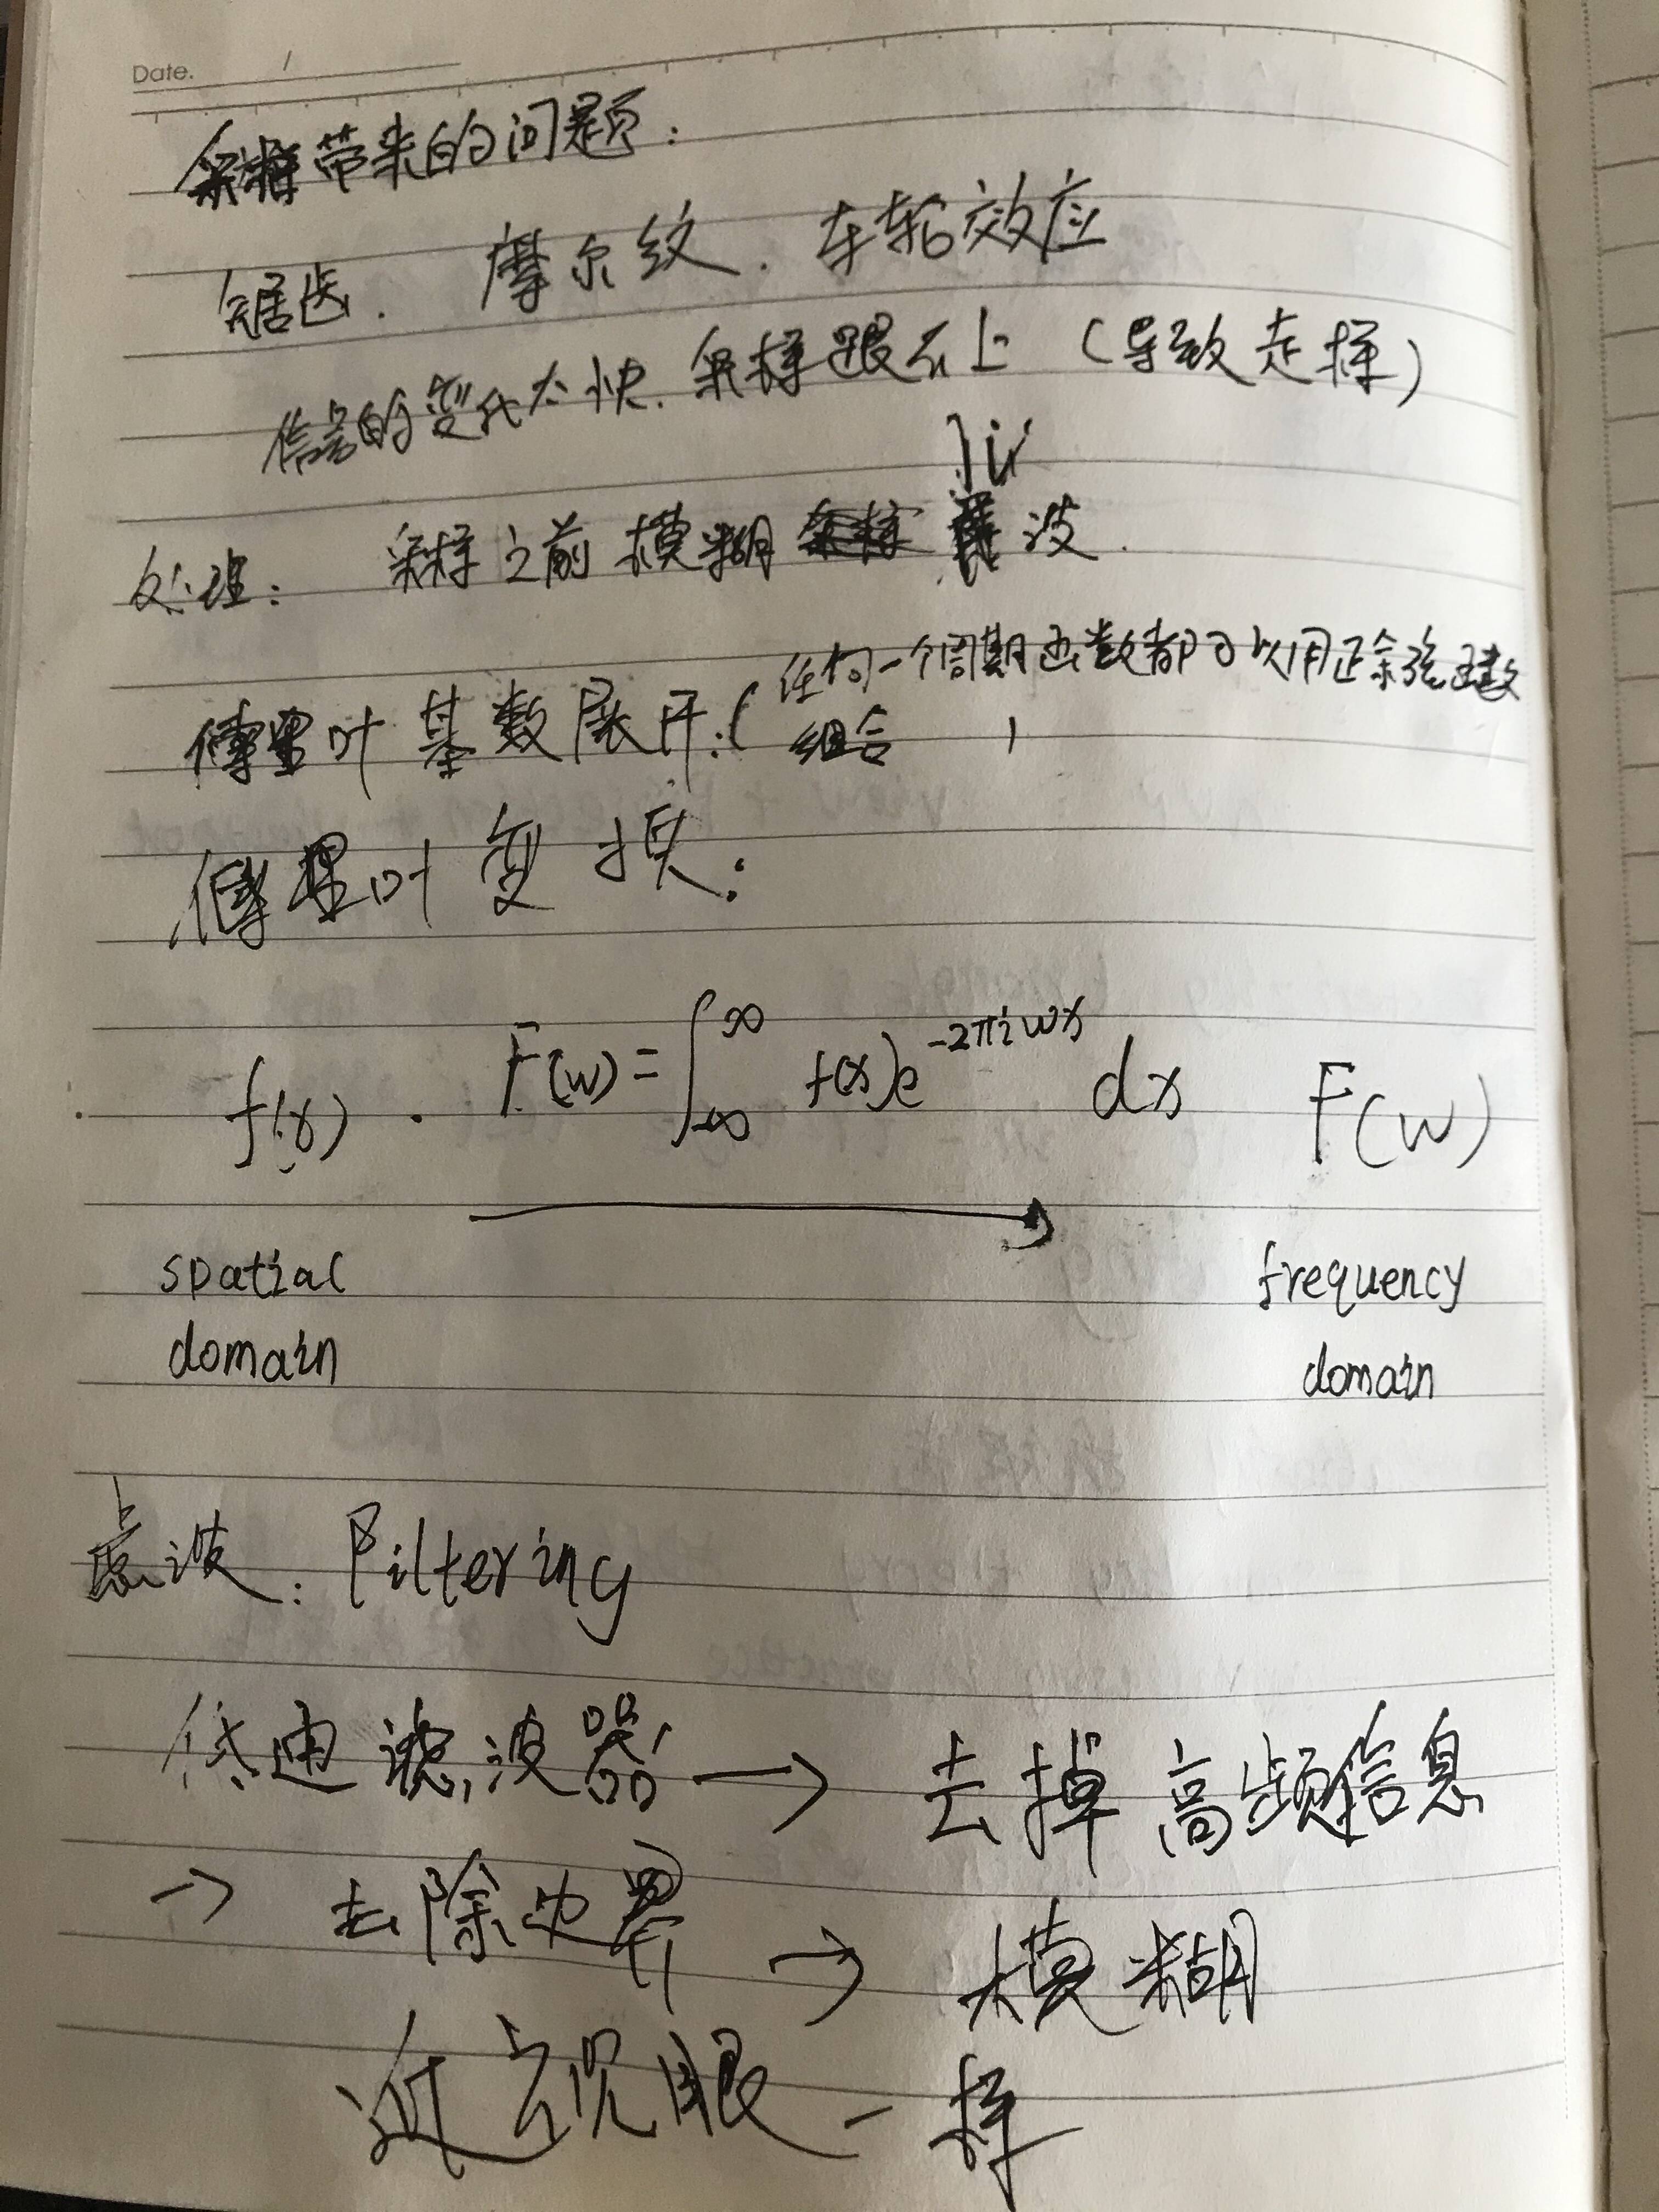 Date. /
采样带来的问题：
锯齿. 摩尔纹. 车轮效应
信号的变化太快. 采样跟不上（导致走样）
处理： 采样之前模糊 波.
傅里叶 基数展开：（任何一个周期函数都可以用正余弦函数
组合 ）
傅里叶变换：
f(x) . F(w) = ∫_{-∞}^{∞} f(x)e^{-2πiwx} dx F(w)
spatial frequency
domain domain
滤波：Filtering
低通滤波器 → 去掉高频信息
→ 去除边界 → 模糊
近视眼一样